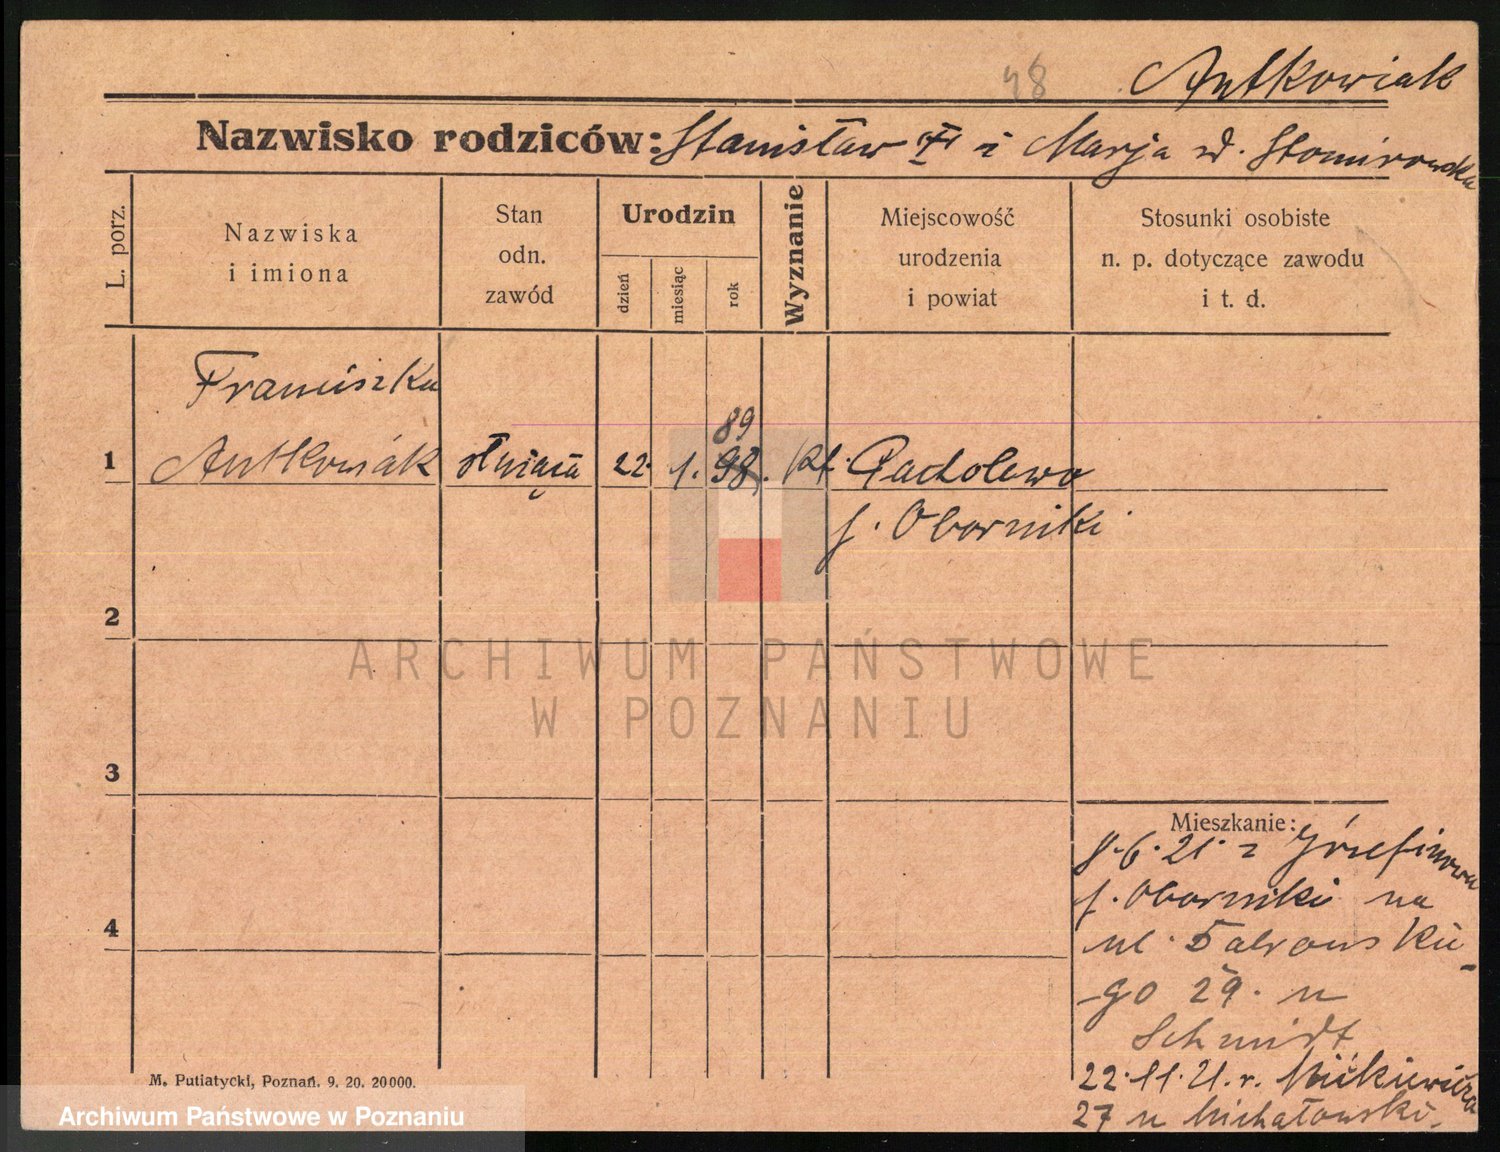 48 Antkowiak
Nazwisko rodziców: Stanisław † i Marja d. Słomirowska
L. porz.
Nazwiska
i imiona
Stan
odn.
zawód
Urodzin
dzień
miesiąc
rok
Wyznanie
Miejscowość
urodzenia
i powiat
Stosunki osobiste
n. p. dotyczące zawodu
i t. d.
Franciszka
89
1 Antkowiak służąca 22. 1. 98. kt. Pacholewo
p. Oborniki
2
ARCHIWUM PAŃSTWOWE
W POZNANIU
3
Mieszkanie:
8.6.21. z Józefinowa
p. Oborniki na
4
ul.
-go 29. u
Schmidt
22.11.21. r. Mickiewicza
27 u Michałowski.
M. Putiatycki, Poznań. 9. 20. 20000.
Archiwum Państwowe w Poznaniu